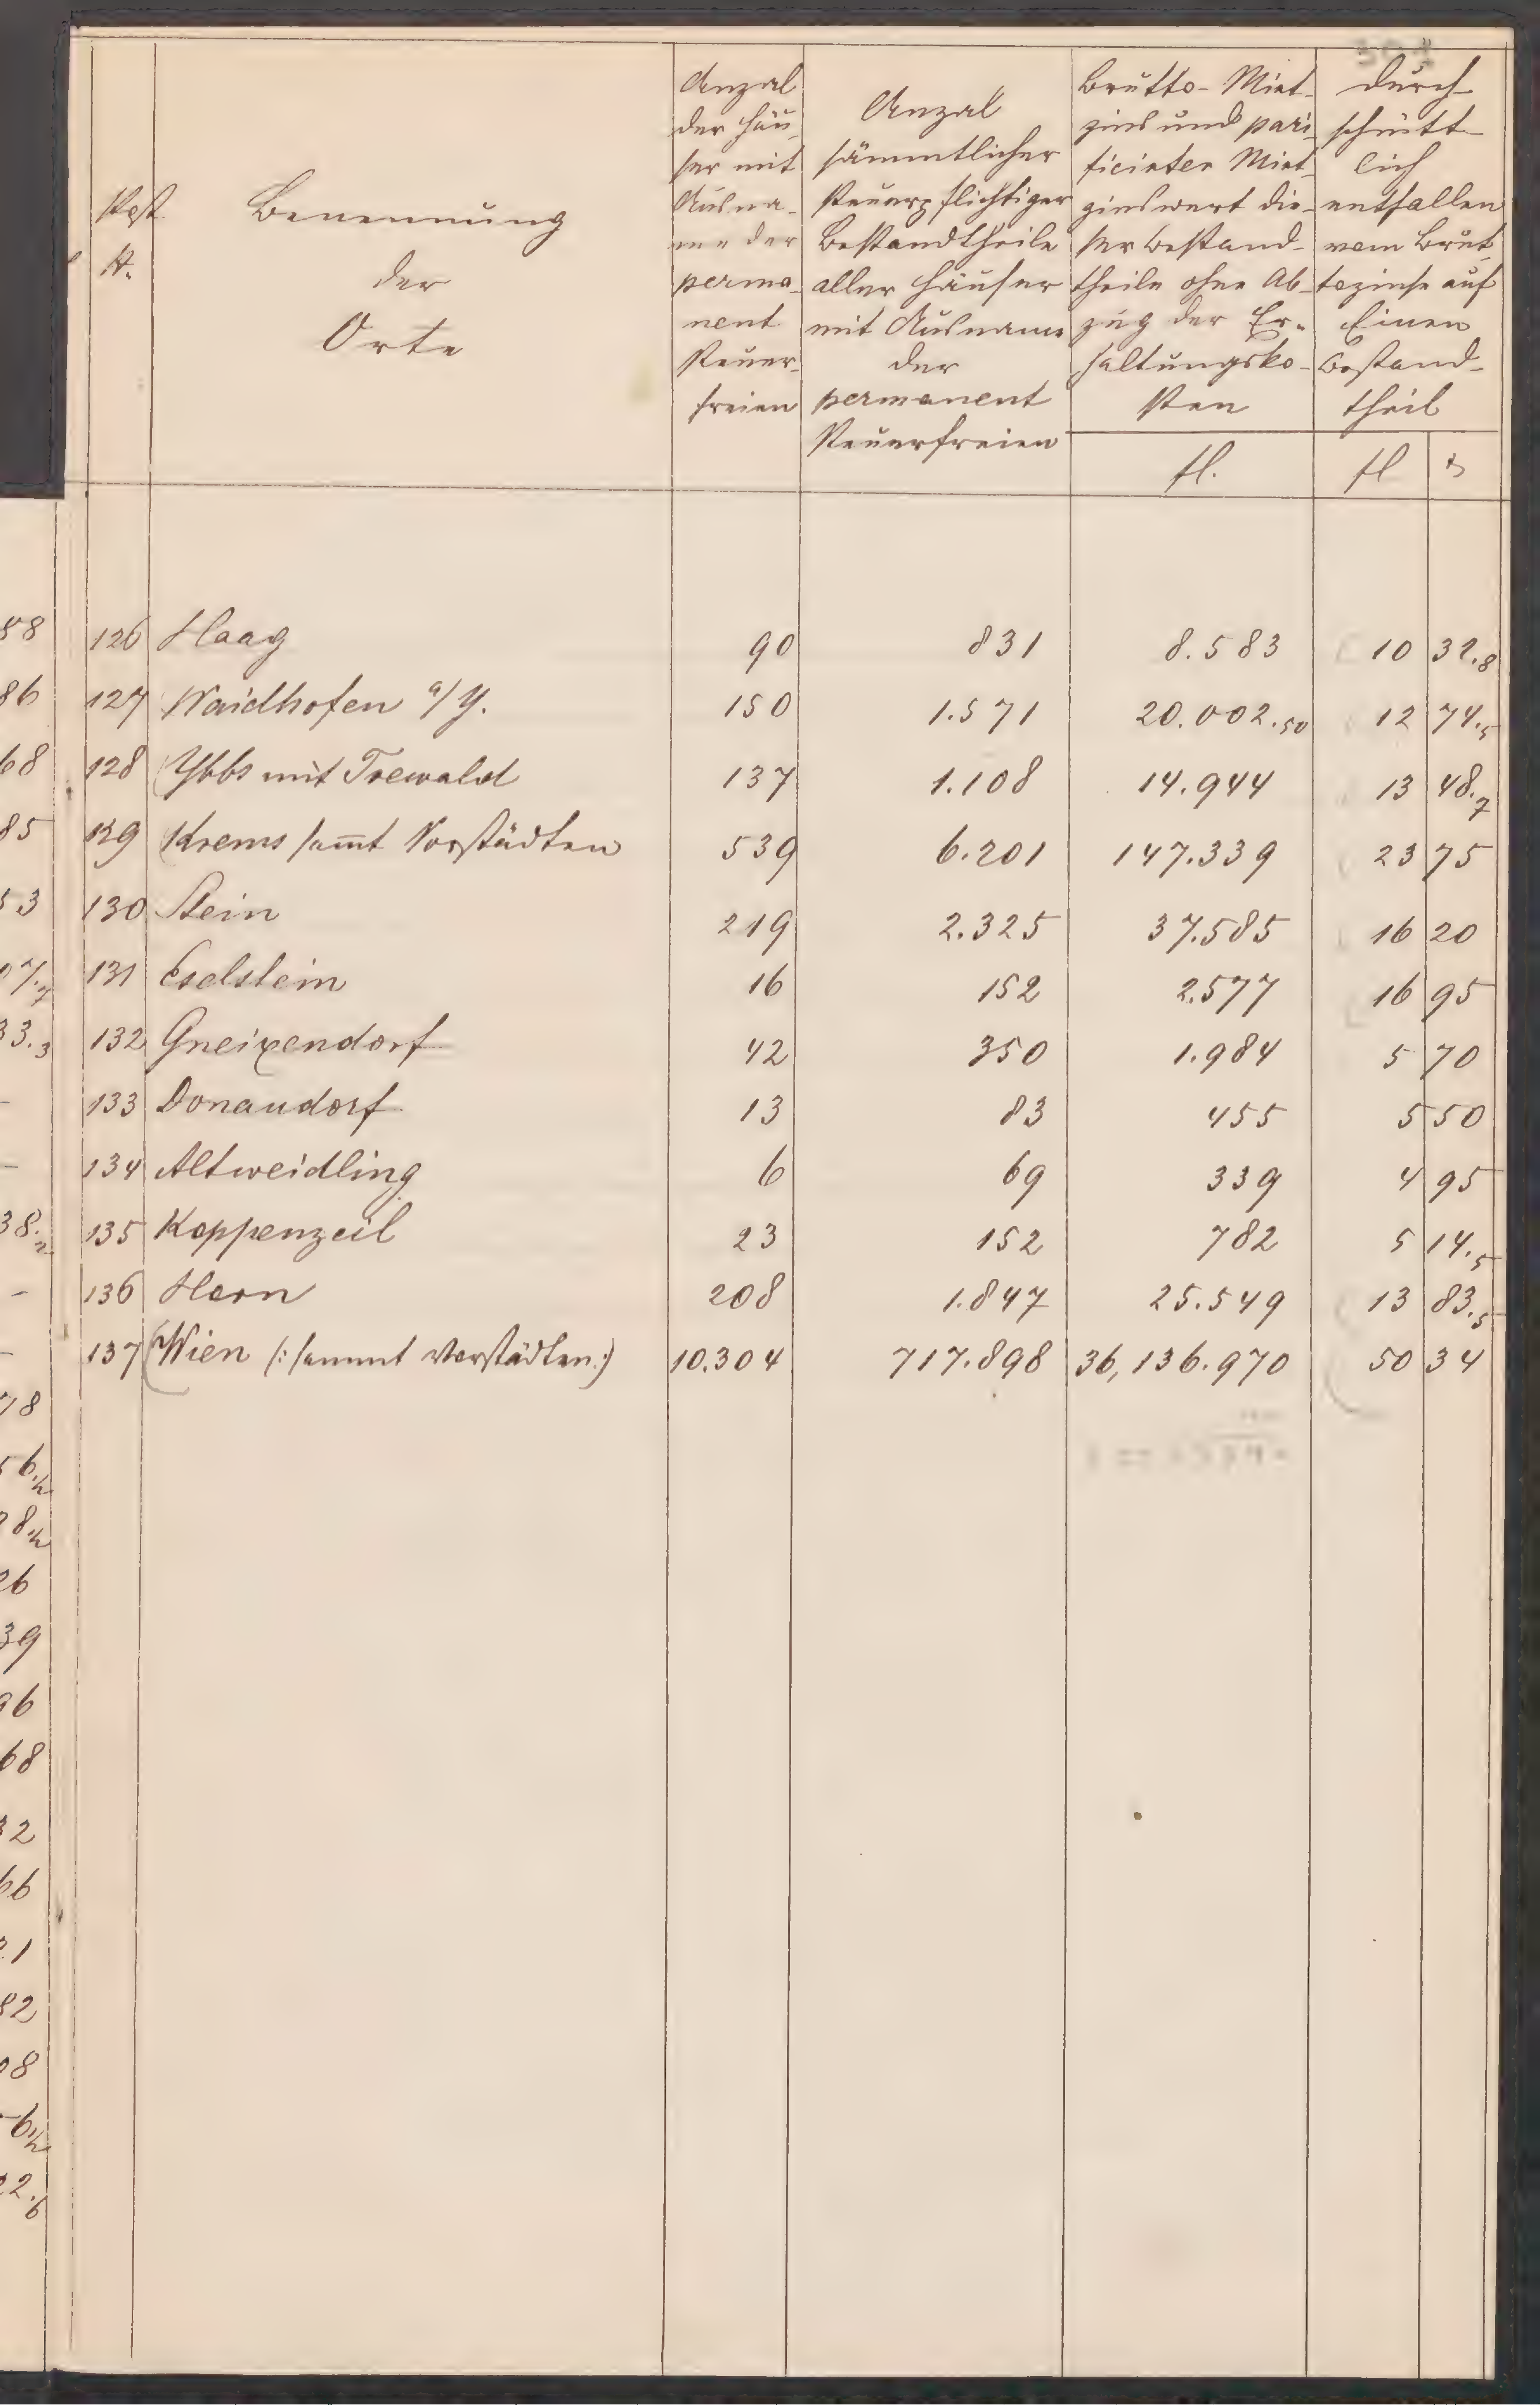 Post
N.
Benennung
der
Orte
Anzal
der Häu-
ser mit
Ausna-
me der
perma-
nent
Steuer-
freien
Anzal
sämmtlicher
steuerpflichtiger
Bestandtheile
aller Häuser
mit Ausname
der
permanent
Steuerfreien
Brutto-Miet-
zins und pari-
ficirter Miet-
zinswert die-
ser Bestand-
theile ohne Ab-
zug der Er-
haltungsko-
sten
fl.
durch-
schnitt-
lich
entfallen
vom Brut-
tozinse auf
Einen
Bestand-
theil
fl
126 Haag 90 831 8.583 10 32.8
127 Waidhofen a/Y. 150 1.571 20.002.50 12 74.5
128 Ybbs mit Trewald 137 1.108 14.944 13 48.7
129 Krems sam̅t Vorstädten 539 6.201 147.339 23 75
130 Stein 219 2.325 37.585 16 20
131 Eselstein 16 152 2.577 16 95
132 Gneixendorf 42 350 1.984 5 70
133 Donaudorf 13 83 455 5 50
134 Altweidling 6 69 339 4 95
135 Koppenzeil 23 152 782 5 14.5
136 Horn 208 1.847 25.549 13 83.5
137 Wien (: sammt Vorstädten :) 10.304 717.898 36,136.970 50 34
88
86
68
85
53
07.7
33.3
-
-
38.2
-
-
78
56.½
28.½
26
39
96
68
32
66
21
82
08
56½
22.6